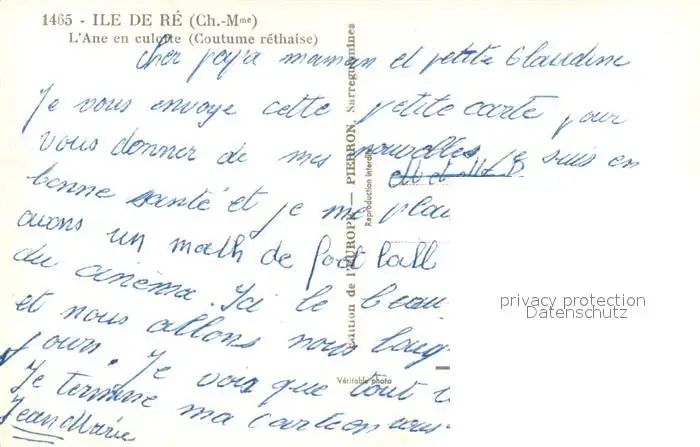 1465 - ILE DE RÉ (Ch.-Mme)
L'Ane en culotte (Coutume réthaise)
Cher papa maman et petite Claudine
Je vous envoye cette petite carte pour
vous donner de mes nouvelles je suis en
bonne santé et je me plai
avons un math de foot ball
du cinéma. Ici le beau
et nous allons nous baig
jour. Je vois que tout
Je termine ma carte en vous
Jean Marie
Edition de l'EUROPE — PIERRON, Sarreguemines
Reproduction interdite
Véritable photo
privacy protection
Datenschutz